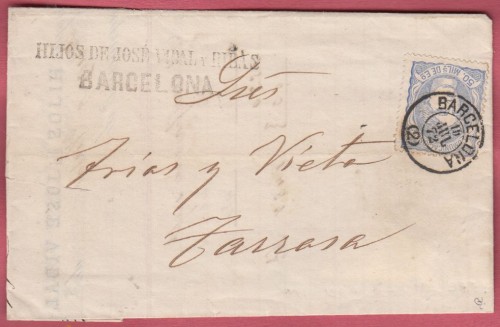 HIJOS DE JOSÉ VIDAL Y RIBAS
BARCELONA
Srés
Arias y Vieta
Tarrasa
50 MILS DE ES
BARCELONA
JUL
72
(2)